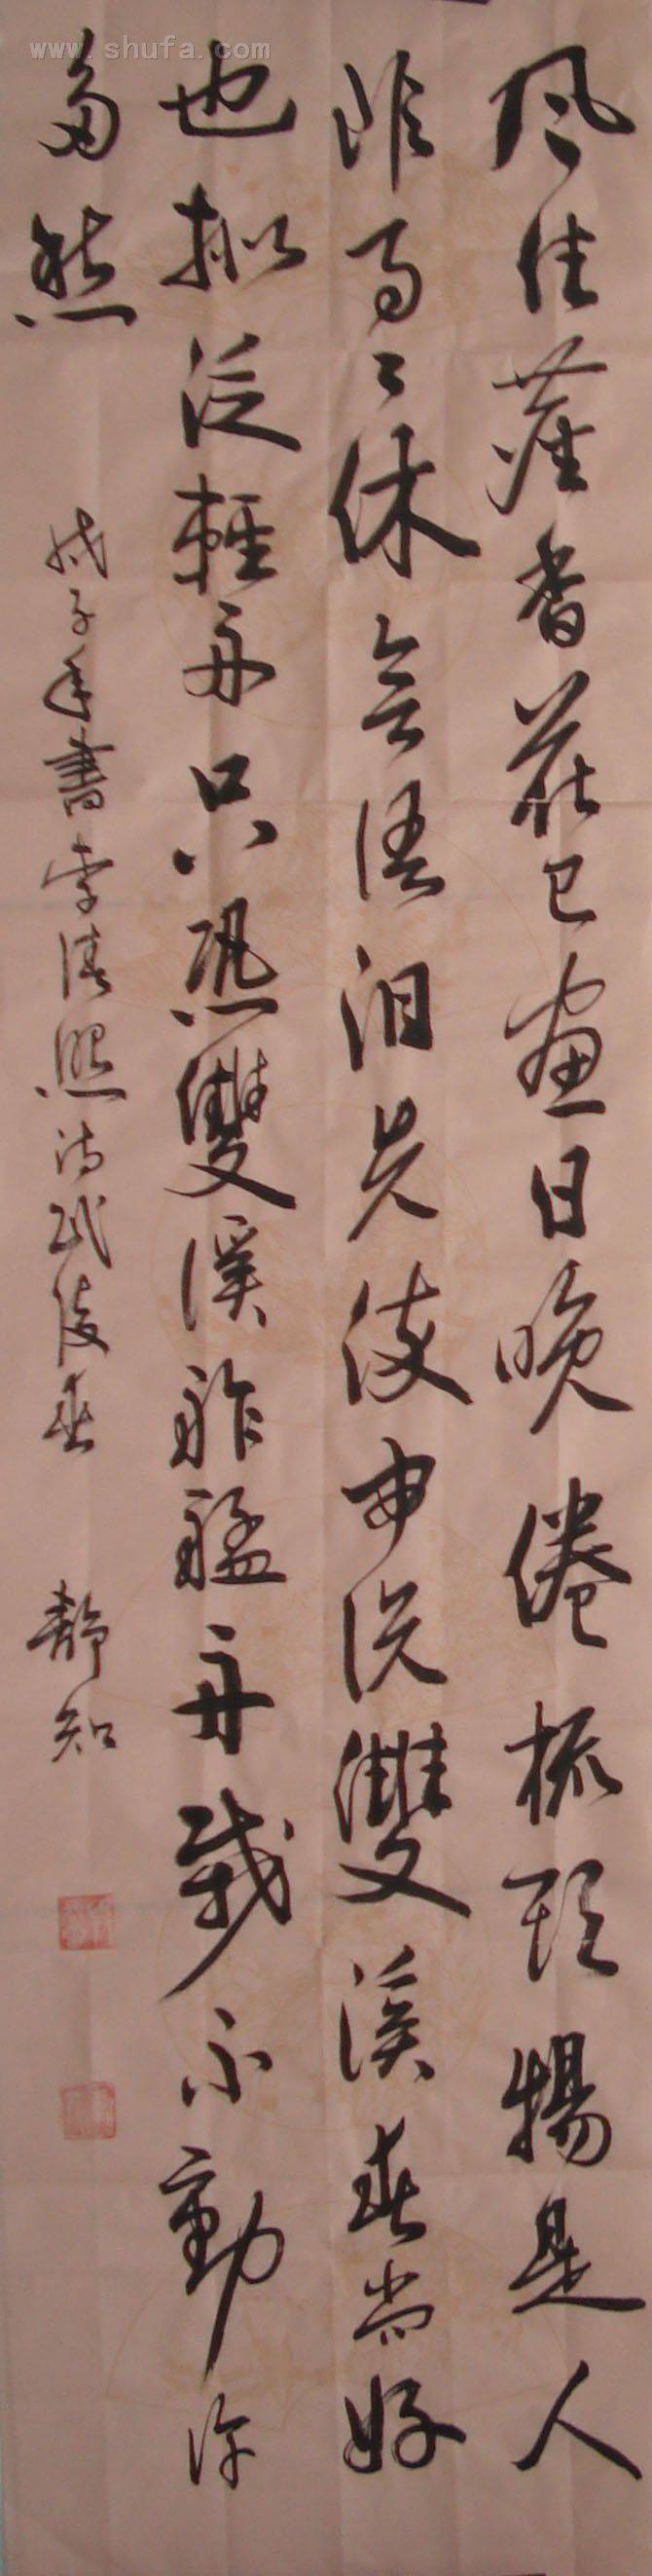 www.shufa.com
風住塵香花已盡日晚倦梳頭物是人
非事々休語泪先流聞説雙溪春尚好
也拟泛輕舟只恐雙溪舴艋舟載不動許
多愁
戊子年書李清照詩武陵春
靜知